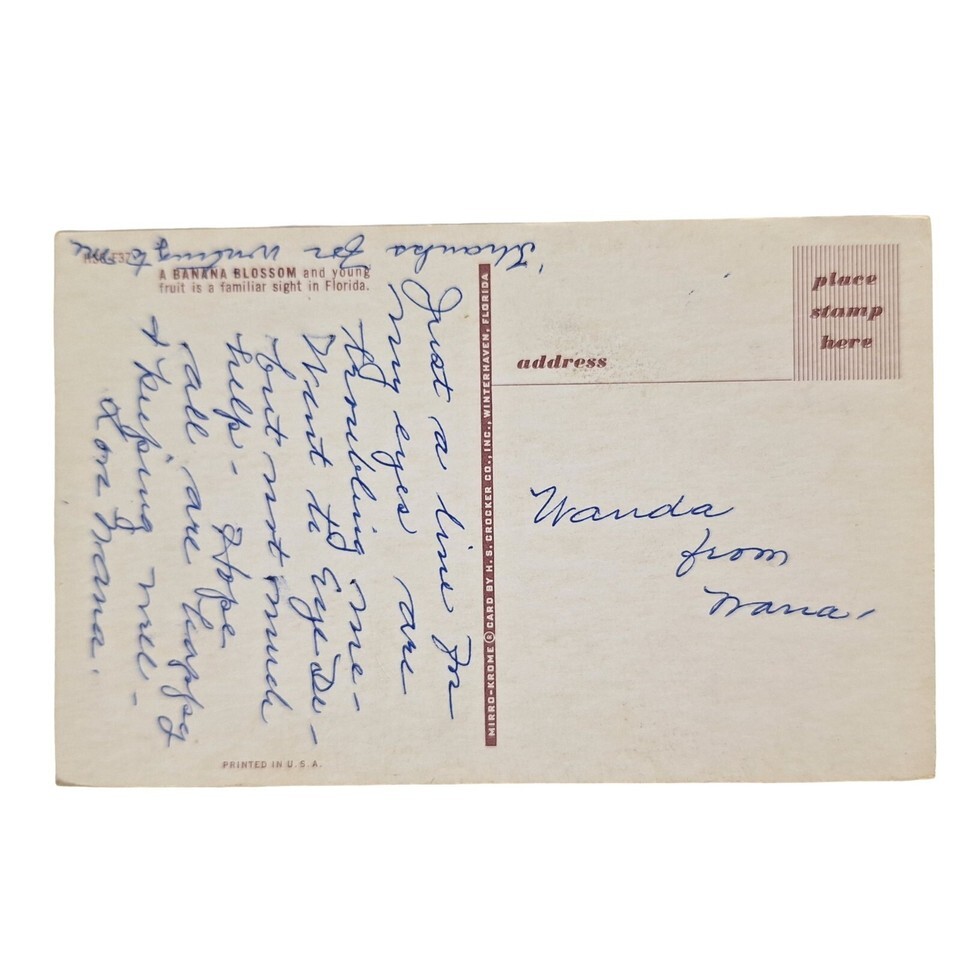 Thanks for writing to me
A BANANA BLOSSOM and young
fruit is a familiar sight in Florida.
Just a line for
my eyes are
throubling me -
Went to Eye Dr -
but not much
help - Hope
all are happy
& keeping well -
Love Nana.
PRINTED IN U.S.A.
MIRRO-KROME® CARD BY H. S. CROCKER CO., INC., WINTERHAVEN, FLORIDA
place
stamp
here
address
Wanda
from
Nana,